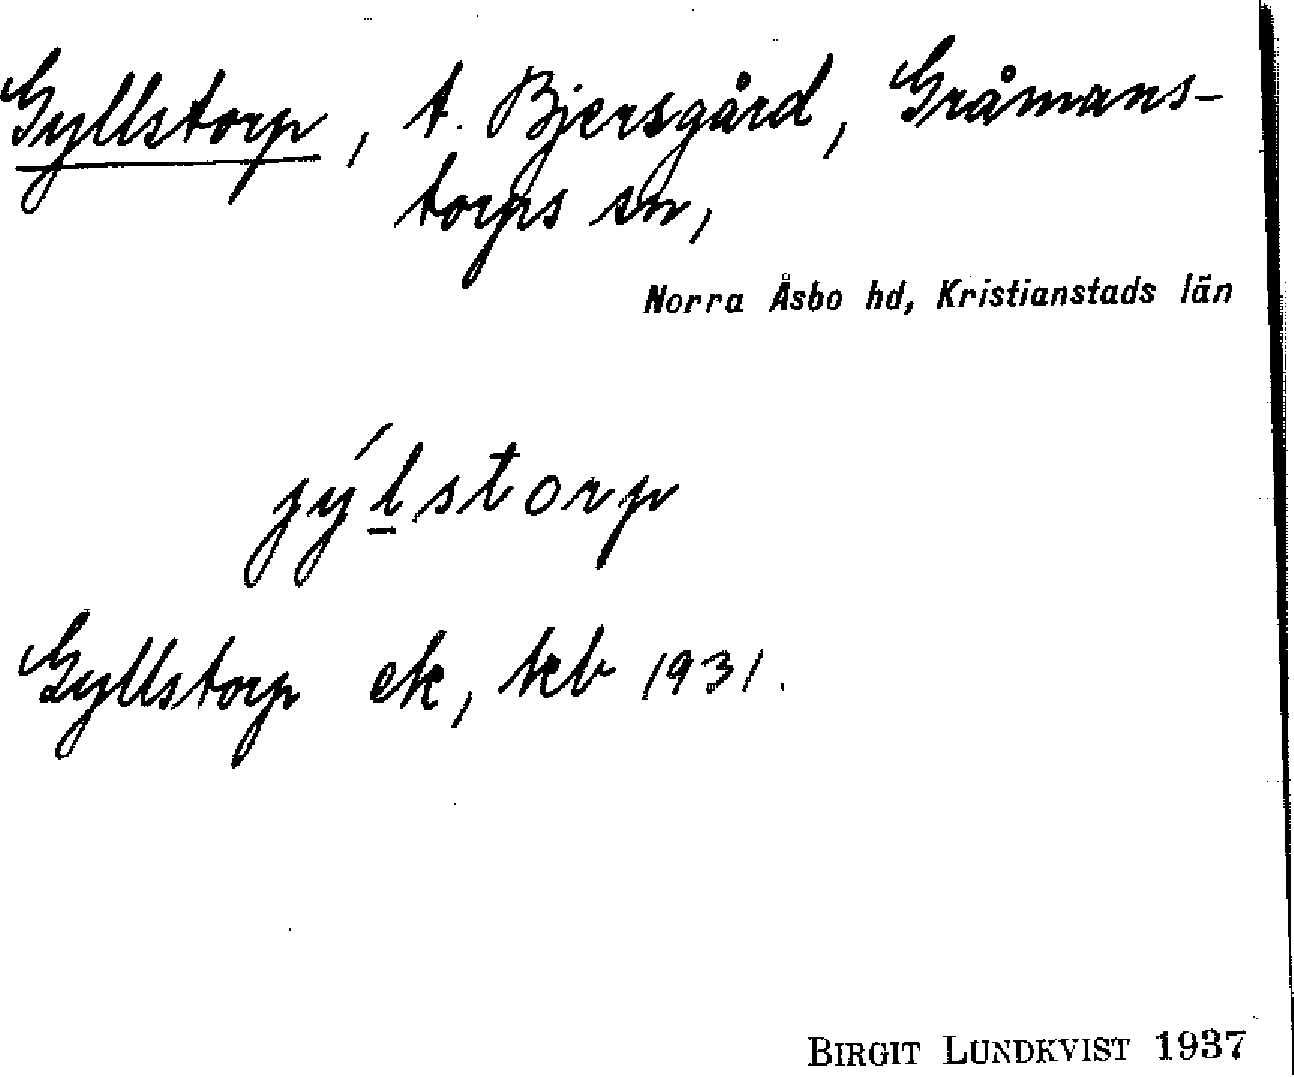 Gyllstorp, t. Bjersgård, Gråmans-
torps sn,
Norra Åsbo hd, Kristianstads län
jýl̲storp
Gyllstorp ek, kb 1931.
BIRGIT LUNDKVIST 1937